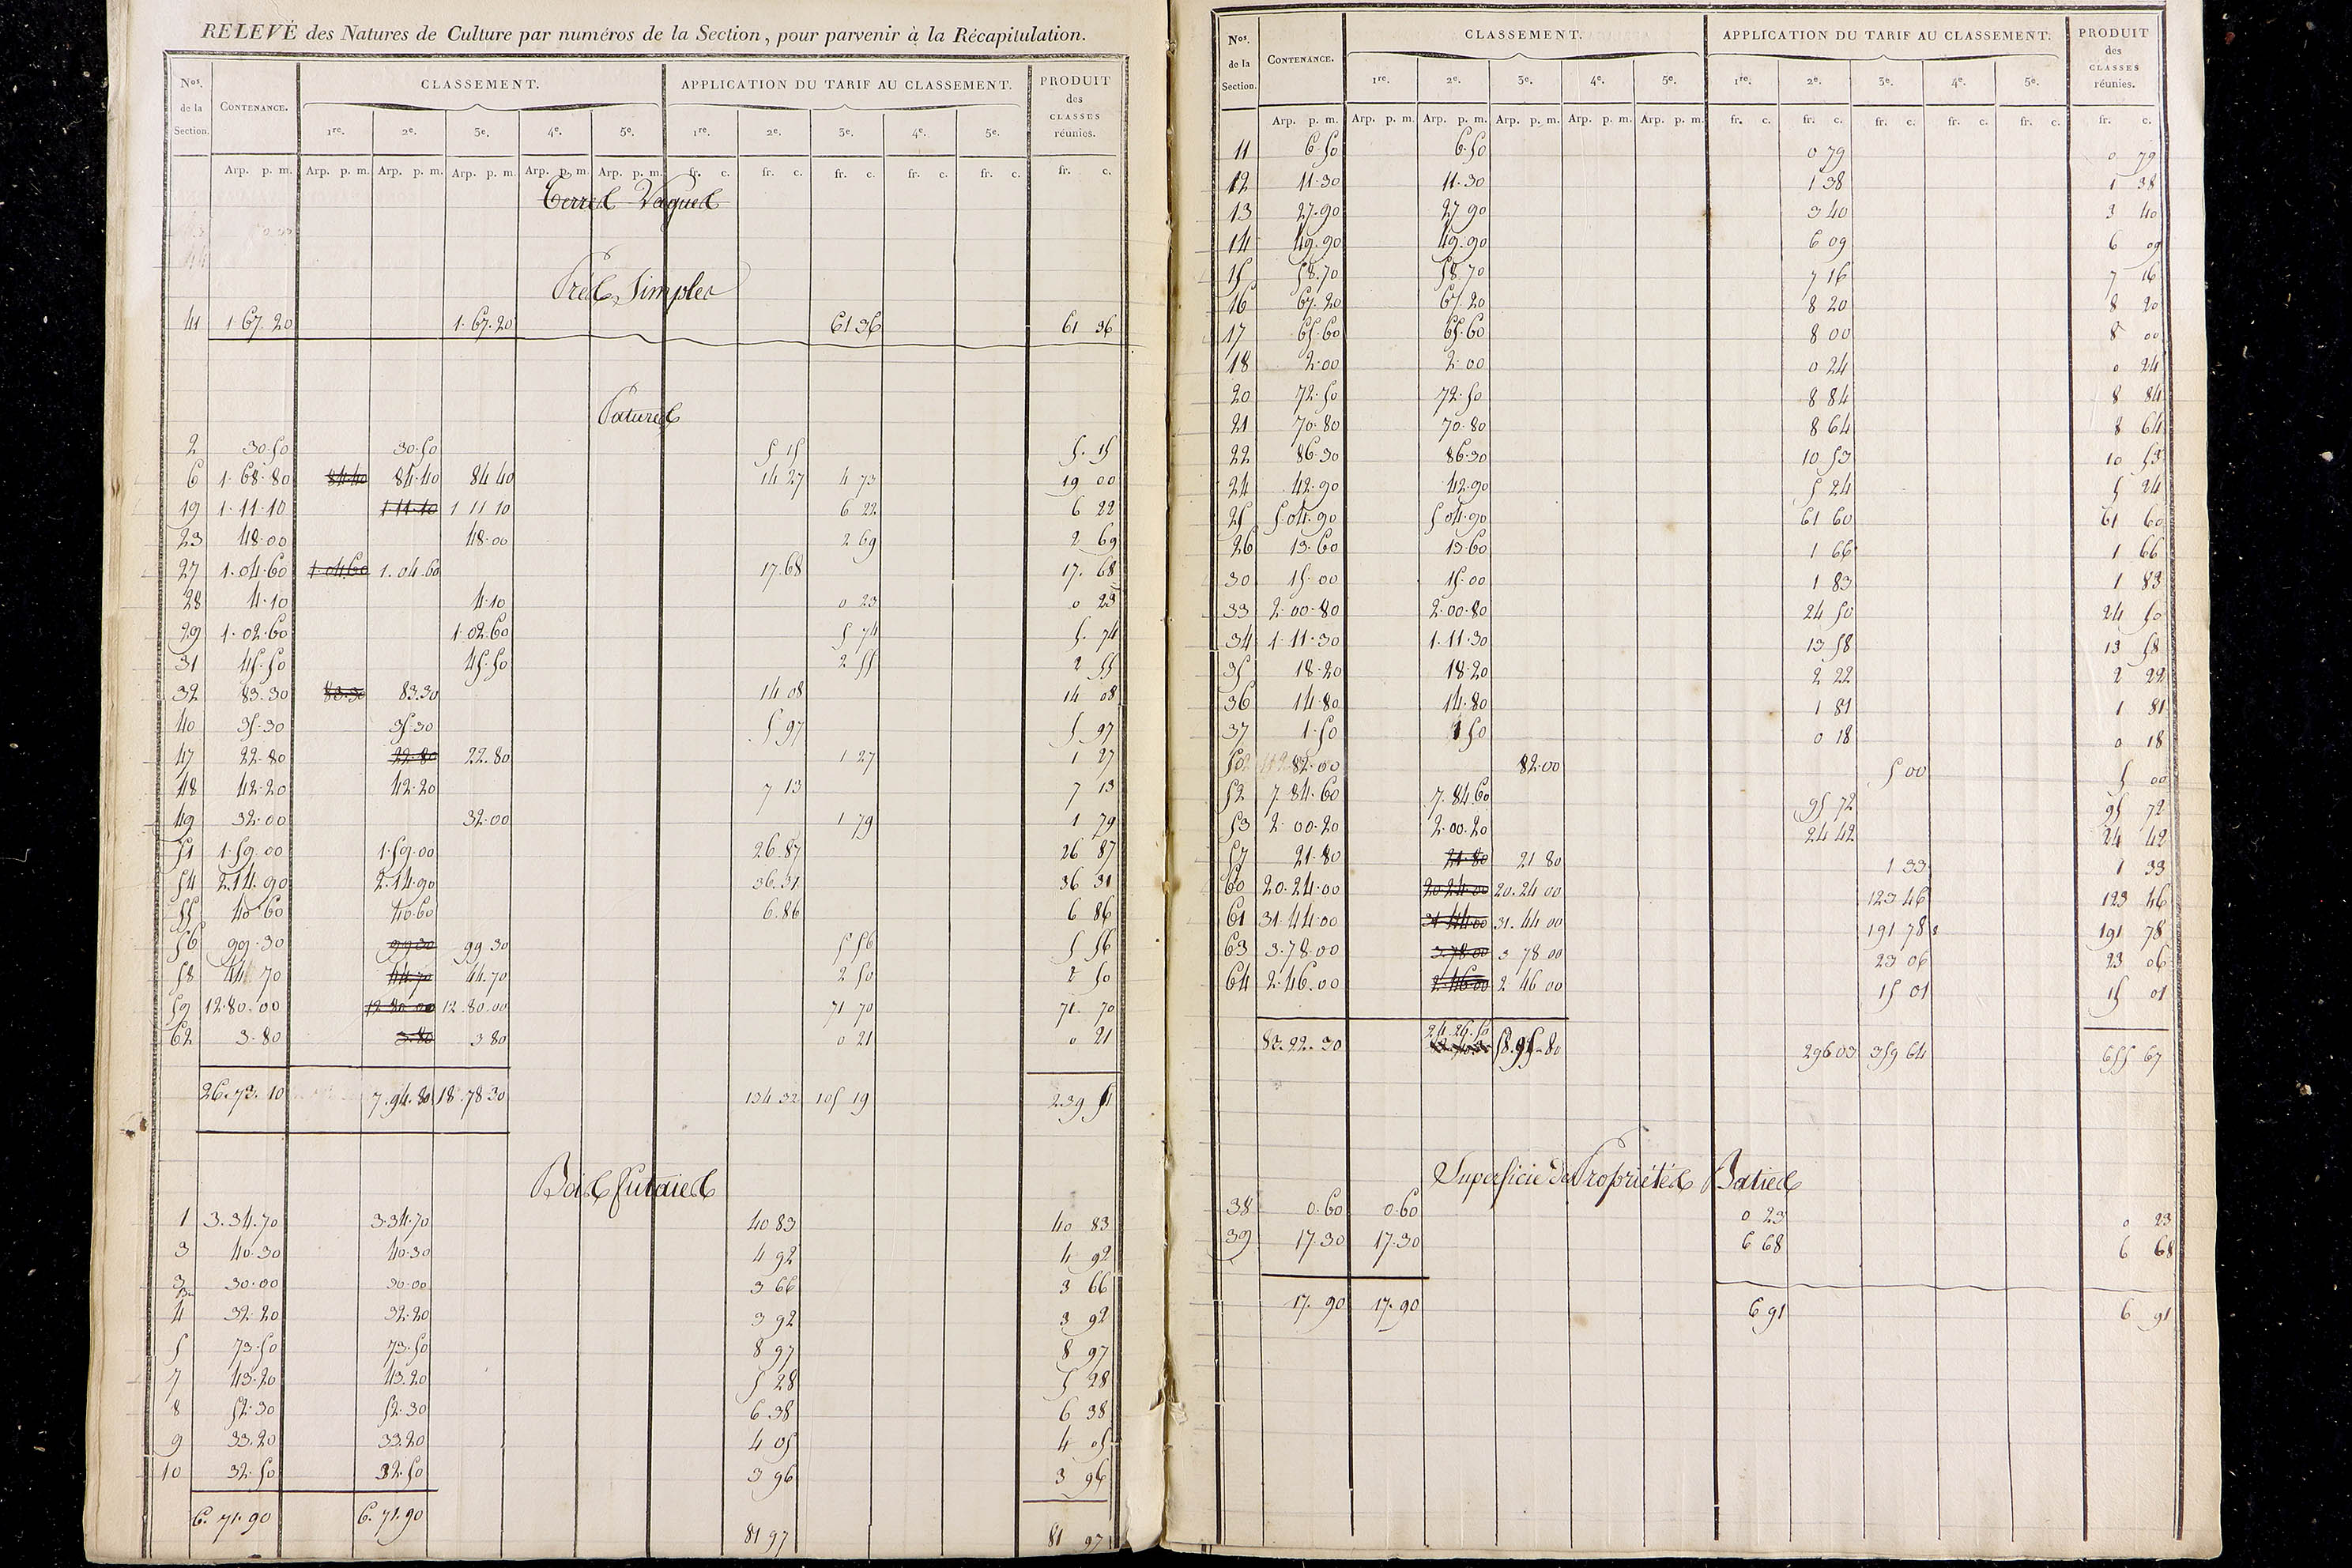 RELEVÉ des Natures de Culture par numéros de la Section, pour parvenir à la Récapitulation.
Nos. de la Section. CONTENANCE. CLASSEMENT. APPLICATION DU TARIF AU CLASSEMENT. PRODUIT des CLASSES réunies.
1re. 2e. 3e. 4e. 5e. 1re. 2e. 3e. 4e. 5e.
Arp. p. m. Arp. p. m. Arp. p. m. Arp. p. m. Arp. p. m. Arp. p. m. fr. c. fr. c. fr. c. fr. c. fr. c. fr. c.
Terres Vagues
Prés Simples
41 1.67.20 1.67.20 61 36 61 36
Patures
2 30.50 30.50 5 15 5.15
6 1.68.80 84.40 84.40 84 40 14 27 4 73 19 00
19 1.11.10 1.11.10 1 11 10 6 22 6 22
23 48.00 48.00 2 69 2 69
27 1.04.60 1.04.60 1.04.60 17.68 17.68
28 4.10 4.10 0 23 0 23
29 1.02.60 1.02.60 5 74 5.74
31 45.50 45.50 2 55 2 55
32 83.30 83.30 83.30 14 08 14 08
40 35.30 35.30 5 97 5 97
47 22.80 22.80 22.80 1 27 1 27
48 42.20 42.20 7 13 7 13
49 32.00 32.00 1 79 1 79
51 1.59.00 1.59.00 26.87 26 87
54 2.14.90 2.14.90 36.31 36 31
55 40.60 40.60 6.86 6 86
56 99.30 99.30 99.30 5 56 5 56
58 44.70 44.70 44.70 2 50 2 50
59 12.80.00 12.80.00 12.80.00 71 70 71.70
62 3.80 3.80 3 80 0 21 0 21
26.73.10 7.94.80 18.78 30 134 32 105 19 239 51
Bois futaies
1 3.34.70 3.34.70 40 83 40 83
3 40.30 40.30 4 92 4 92
3 30.00 30.00 3 66 3 66
4 32.20 32.20 3 92 3 92
5 73.50 73.50 8 97 8 97
7 43.20 43.20 5 28 5 28
8 52.30 52.30 6 38 6 38
9 33.20 33.20 4 05 4 05
10 32.50 32.50 3 96 3 96
6.71.90 6.71.90 81 97 81 97
Nos. de la Section. CONTENANCE. CLASSEMENT. APPLICATION DU TARIF AU CLASSEMENT. PRODUIT des CLASSES réunies.
1re. 2e. 3e. 4e. 5e. 1re. 2e. 3e. 4e. 5e.
Arp. p. m. Arp. p. m. Arp. p. m. Arp. p. m. Arp. p. m. Arp. p. m. fr. c. fr. c. fr. c. fr. c. fr. c. fr. c.
11 6.50 6.50 0 79 0 79
12 11.30 11.30 1 38 1 38
13 27.90 27 90 3 40 3 40
14 49.90 49.90 6 09 6 09
15 58.70 58.70 7 16 7 16
16 67.20 67.20 8 20 8 20
17 65.60 65.60 8 00 8 00
18 2.00 2.00 0 24 0 24
20 72.50 72.50 8 84 8 84
21 70.80 70.80 8 64 8 64
22 86.30 86.30 10 53 10 53
24 42.90 42.90 5 24 5 24
25 5.04.90 5 04.90 61 60 61 60
26 13.60 13.60 1 66 1 66
30 15.00 15.00 1 83 1 83
33 2.00.80 2.00.80 24 50 24 50
34 1.11.30 1.11.30 13 58 13 58
35 18.20 18.20 2 22 2 22
36 14.80 14.80 1 81 1 81
37 1.50 1 50 0 18 0 18
50 82.00 82.00 5 00 5 00
52 7.84.60 7.84.60 95 72 95 72
53 2.00.20 2.00.20 24 42 24 42
57 21.80 21.80 21 80 1 33 1 33
60 20.24.00 20 24.00 20.24 00 123 46 123 46
61 31.44.00 31.44.00 31.44 00 191 78 191 78
63 3.78.00 3.78.00 3 78 00 23 06 23 06
64 2.46.00 2.46.00 2 46 00 15 01 15 01
83.22.30 24.26.50 58.95.80 296.03 359 64 655 67
Superficie des Propriétés Baties
38 0.60 0.60 0 23 0 23
39 17.30 17.30 6 68 6 68
17.90 17.90 6 91 6 91